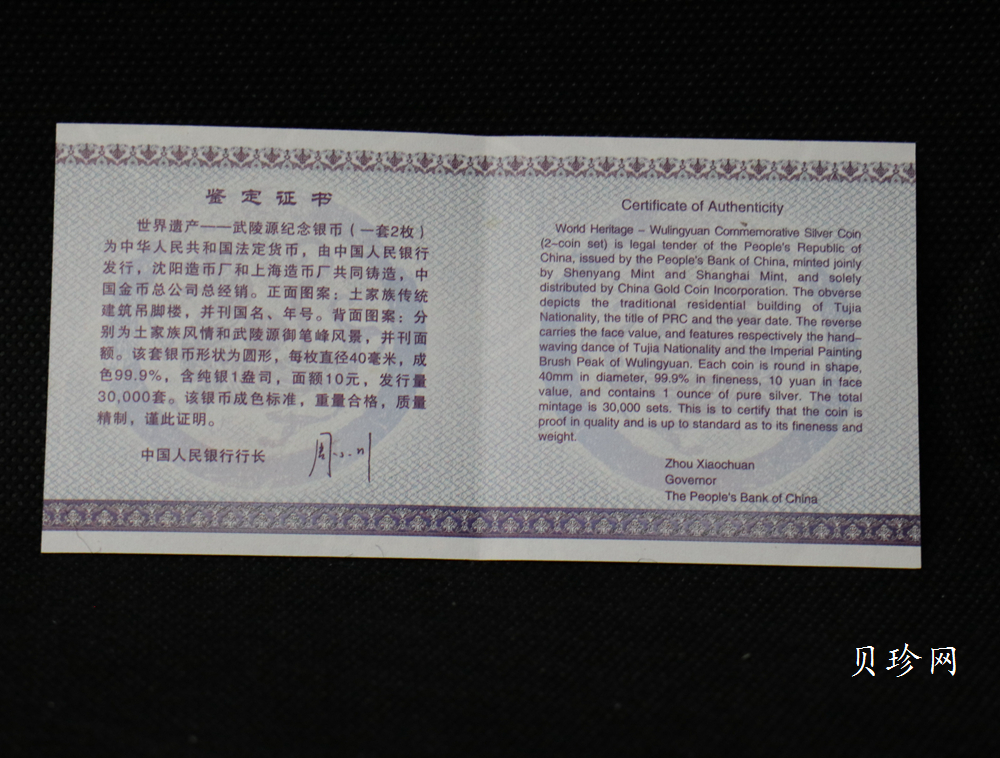 鉴定证书
世界遗产——武陵源纪念银币（一套2枚）
为中华人民共和国法定货币，由中国人民银行
发行，沈阳造币厂和上海造币厂共同铸造，中
国金币总公司总经销。正面图案：土家族传统
建筑吊脚楼，并刊国名、年号。背面图案：分
别为土家族风情和武陵源御笔峰风景，并刊面
额。该套银币形状为圆形，每枚直径40毫米，成
色99.9%，含纯银1盎司，面额10元，发行量
30,000套。该银币成色标准，重量合格，质量
精制，谨此证明。
中国人民银行行长 周小川
Certificate of Authenticity
World Heritage – Wulingyuan Commemorative Silver Coin
(2–coin set) is legal tender of the People's Republic of
China, issued by the People's Bank of China, minted joinly
by Shenyang Mint and Shanghai Mint, and solely
distributed by China Gold Coin Incorporation. The obverse
depicts the traditional residential building of Tujia
Nationality, the title of PRC and the year date. The reverse
carries the face value, and features respectively the hand–
waving dance of Tujia Nationality and the Imperial Painting
Brush Peak of Wulingyuan. Each coin is round in shape,
40mm in diameter, 99.9% in fineness, 10 yuan in face
value, and contains 1 ounce of pure silver. The total
mintage is 30,000 sets. This is to certify that the coin is
proof in quality and is up to standard as to its fineness and
weight.
Zhou Xiaochuan
Governor
The People's Bank of China
贝珍网